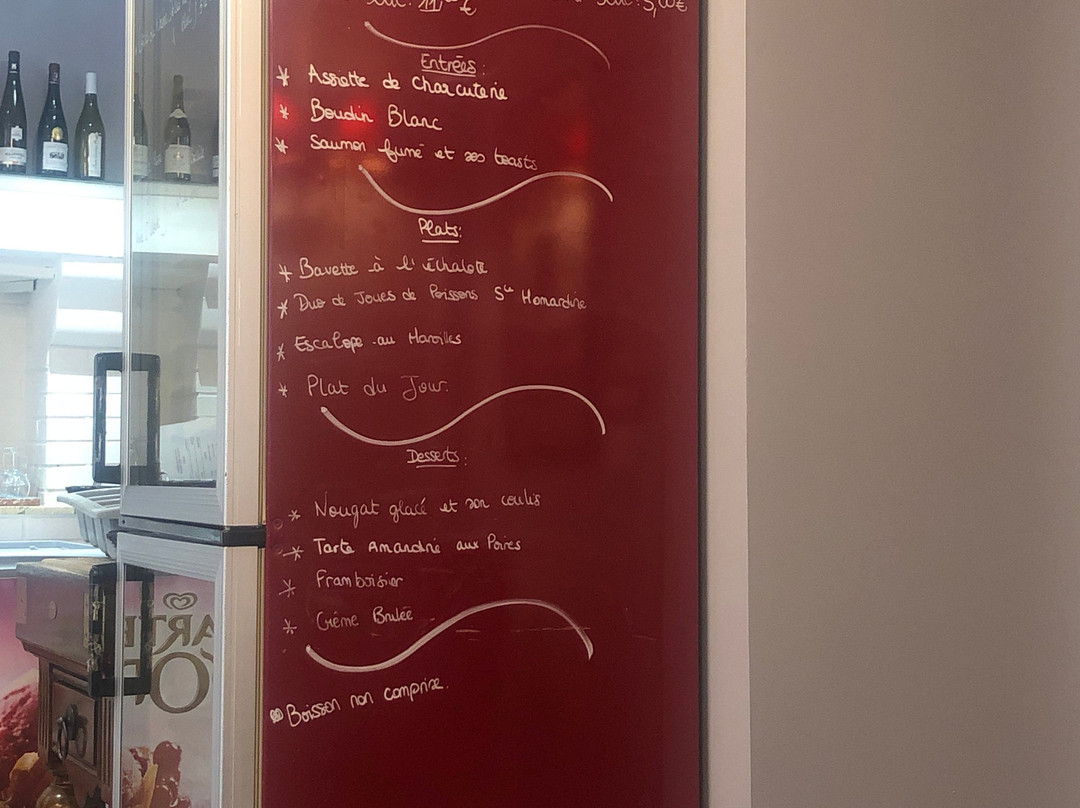 Entrées:
* Assiette de Charcuterie
* Boudin Blanc
* Saumon fumé et ses toasts
Plats:
* Bavette à l'échalote
* Duo de Joues de Poissons Sce Homardine
* Escalope au Maroilles
* Plat du Jour.
Desserts:
* Nougat glacé et son coulis
* Tarte Amandine aux Poires
* Framboisier
* Crème Brulée
Boisson non comprise.